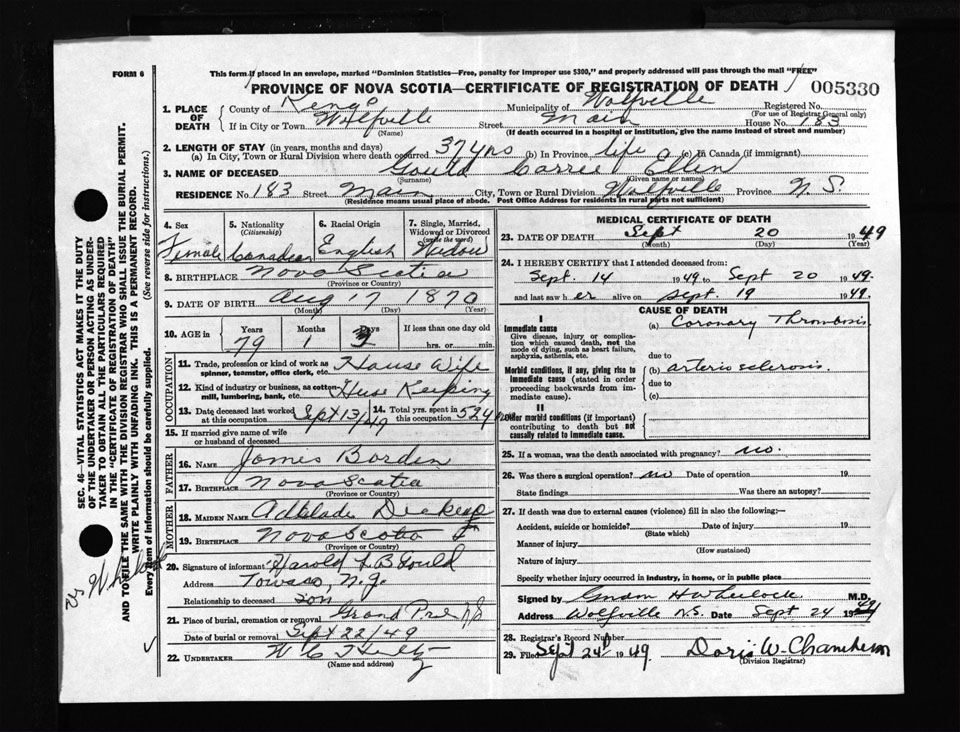 FORM 6
This form if placed in an envelope, marked "Dominion Statistics—Free, penalty for improper use $300," and properly addressed will pass through the mail "FREE"
PROVINCE OF NOVA SCOTIA—CERTIFICATE OF REGISTRATION OF DEATH
005330
1. PLACE OF DEATH
County of Kings Municipality of Wolfville Registered No.
(For use of Registrar General only)
If in City or Town Wolfville Street Main House No. 183
(Name) (If death occurred in a hospital or institution, give the name instead of street and number)
2. LENGTH OF STAY (in years, months and days)
(a) In City, Town or Rural Division where death occurred 37 yrs (b) In Province life (c) In Canada (if immigrant)
3. NAME OF DECEASED Gould Carrie Ellen
(Surname) (Given name or names)
RESIDENCE No. 183 Street Main City, Town or Rural Division Wolfville Province N. S.
(Residence means usual place of abode. Post Office Address for residents in rural parts not sufficient)
4. Sex
Female
5. Nationality
(Citizenship)
Canadian
6. Racial Origin
English
7. Single, Married, Widowed or Divorced
(write the word)
Widow
8. BIRTHPLACE Nova Scotia
(Province or Country)
9. DATE OF BIRTH Aug 17 1870
(Month) (Day) (Year)
10. AGE in
Years Months Days If less than one day old
79 1 3 hrs. or min.
OCCUPATION
11. Trade, profession or kind of work as spinner, teamster, office clerk, etc. House Wife
12. Kind of industry or business, as cotton mill, lumbering, bank, etc. House Keeping
13. Date deceased last worked at this occupation Sept 13/49
14. Total yrs. spent in this occupation
15. If married give name of wife or husband of deceased
FATHER
16. NAME James Borden
17. BIRTHPLACE Nova Scotia
(Province or Country)
MOTHER
18. MAIDEN NAME
19. BIRTHPLACE Nova Scotia
(Province or Country)
20. Signature of informant Harold L B Gould
Address Towaco, N. J.
Relationship to deceased son
21. Place of burial, cremation or removal Grand Pre NS
Date of burial or removal Sept 22/49
22. UNDERTAKER
(Name and address)
MEDICAL CERTIFICATE OF DEATH
23. DATE OF DEATH Sept 20 1949
(Month) (Day) (Year)
24. I HEREBY CERTIFY that I attended deceased from:
Sept. 14 1949 to Sept 20 1949.
and last saw her alive on Sept. 19 1949.
CAUSE OF DEATH
I
Immediate cause
Give disease, injury or complication which caused death, not the mode of dying, such as heart failure, asphyxia, asthenia, etc.
(a) Coronary Thrombosis
due to
Morbid conditions, if any, giving rise to immediate cause (stated in order proceeding backwards from immediate cause).
(b) arterio sclerosis.
due to
(c)
II
Other morbid conditions (if important) contributing to death but not causally related to immediate cause.
25. If a woman, was the death associated with pregnancy? no.
26. Was there a surgical operation? no Date of operation 19
State findings Was there an autopsy?
27. If death was due to external causes (violence) fill in also the following:—
Accident, suicide or homicide? Date of injury 19
(State which)
Manner of injury
(How sustained)
Nature of injury
Specify whether injury occurred in industry, in home, or in public place
Signed by M.D.
Address Wolfville N.S. Date Sept 24 1949
28. Registrar's Record Number
29. Filed Sept 24 1949 Doris W.
(Division Registrar)
SEC. 46—VITAL STATISTICS ACT MAKES IT THE DUTY
OF THE UNDERTAKER OR PERSON ACTING AS UNDER-
TAKER TO OBTAIN ALL THE PARTICULARS REQUIRED
IN THE "CERTIFICATE OF REGISTRATION OF DEATH"
AND TO FILE THE SAME WITH THE DIVISION REGISTRAR WHO SHALL ISSUE THE BURIAL PERMIT.
WRITE PLAINLY WITH UNFADING INK. THIS IS A PERMANENT RECORD.
Every item of information should be carefully supplied. (See reverse side for instructions.)